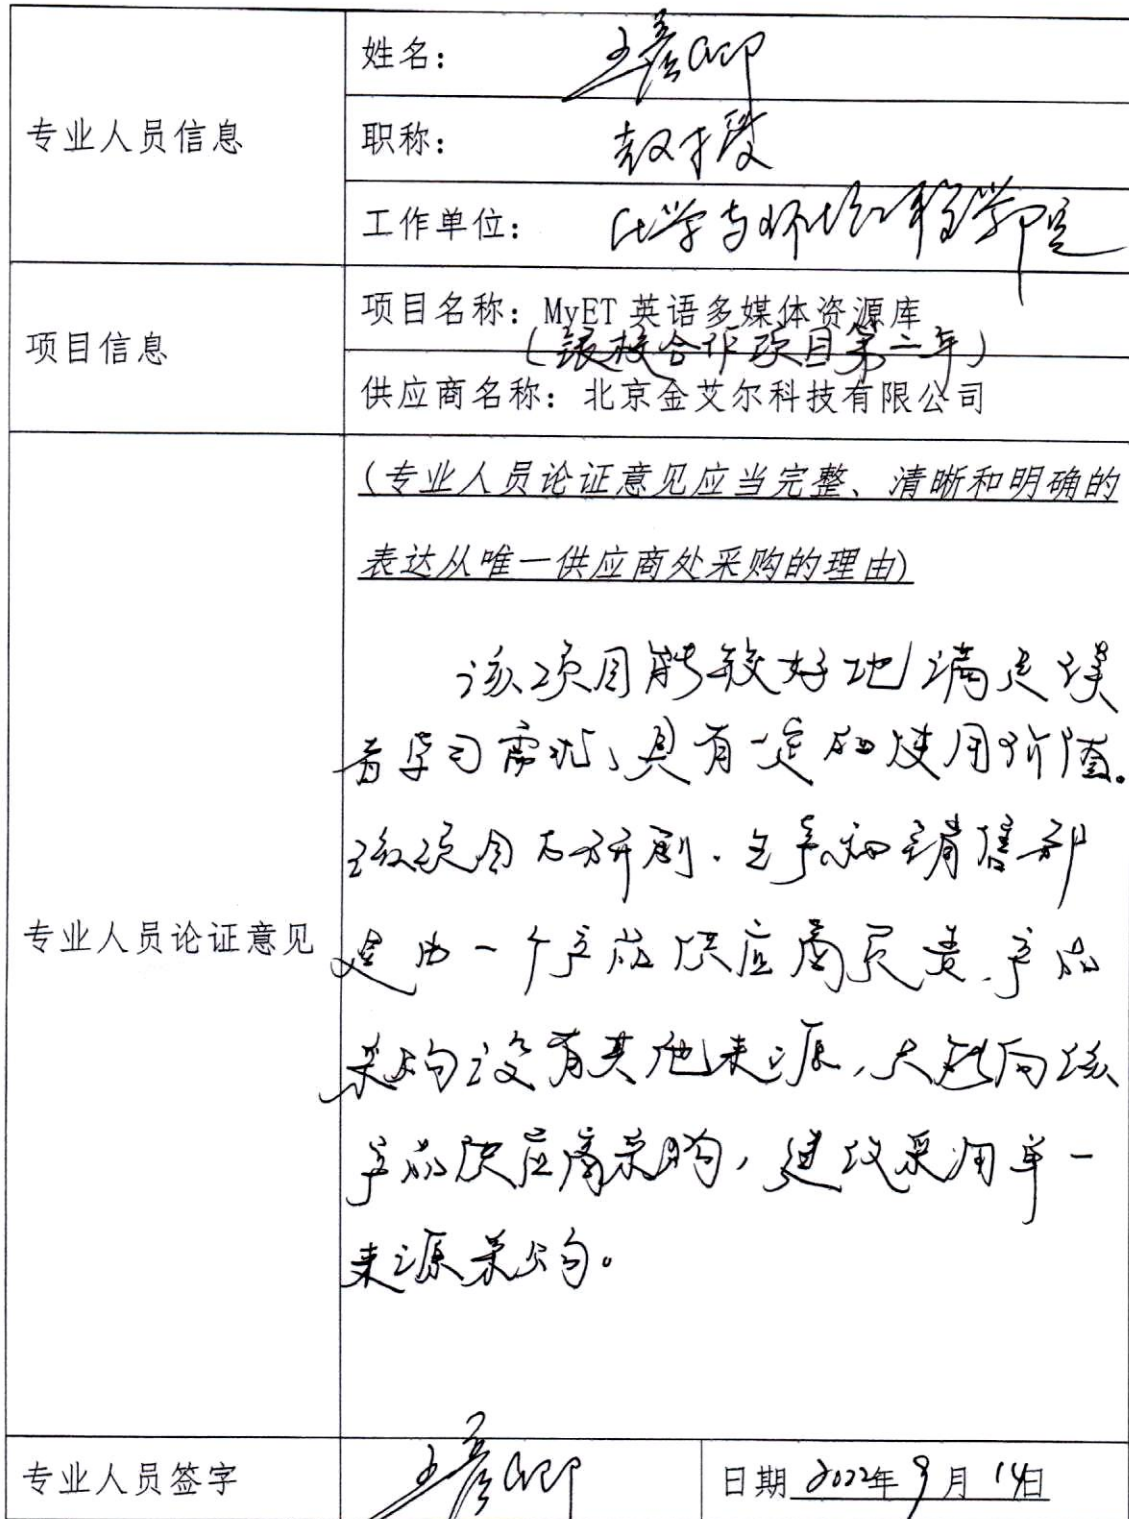 专业人员信息
姓名：王彦卿
职称：教授
工作单位：化学与环境工程学院
项目信息
项目名称：MyET 英语多媒体资源库
（银校合作项目第二年）
供应商名称：北京金艾尔科技有限公司
专业人员论证意见
(专业人员论证意见应当完整、清晰和明确的
表达从唯一供应商处采购的理由)
该项目能较好地满足读
者学习需求，具有一定的使用价值。
该项目的研制、生产和销售都
是由一个产品供应商负责，产品
采购没有其他来源，只能向该
产品供应商采购，建议采用单一
来源采购。
专业人员签字
王彦卿
日期 2022年9月14日